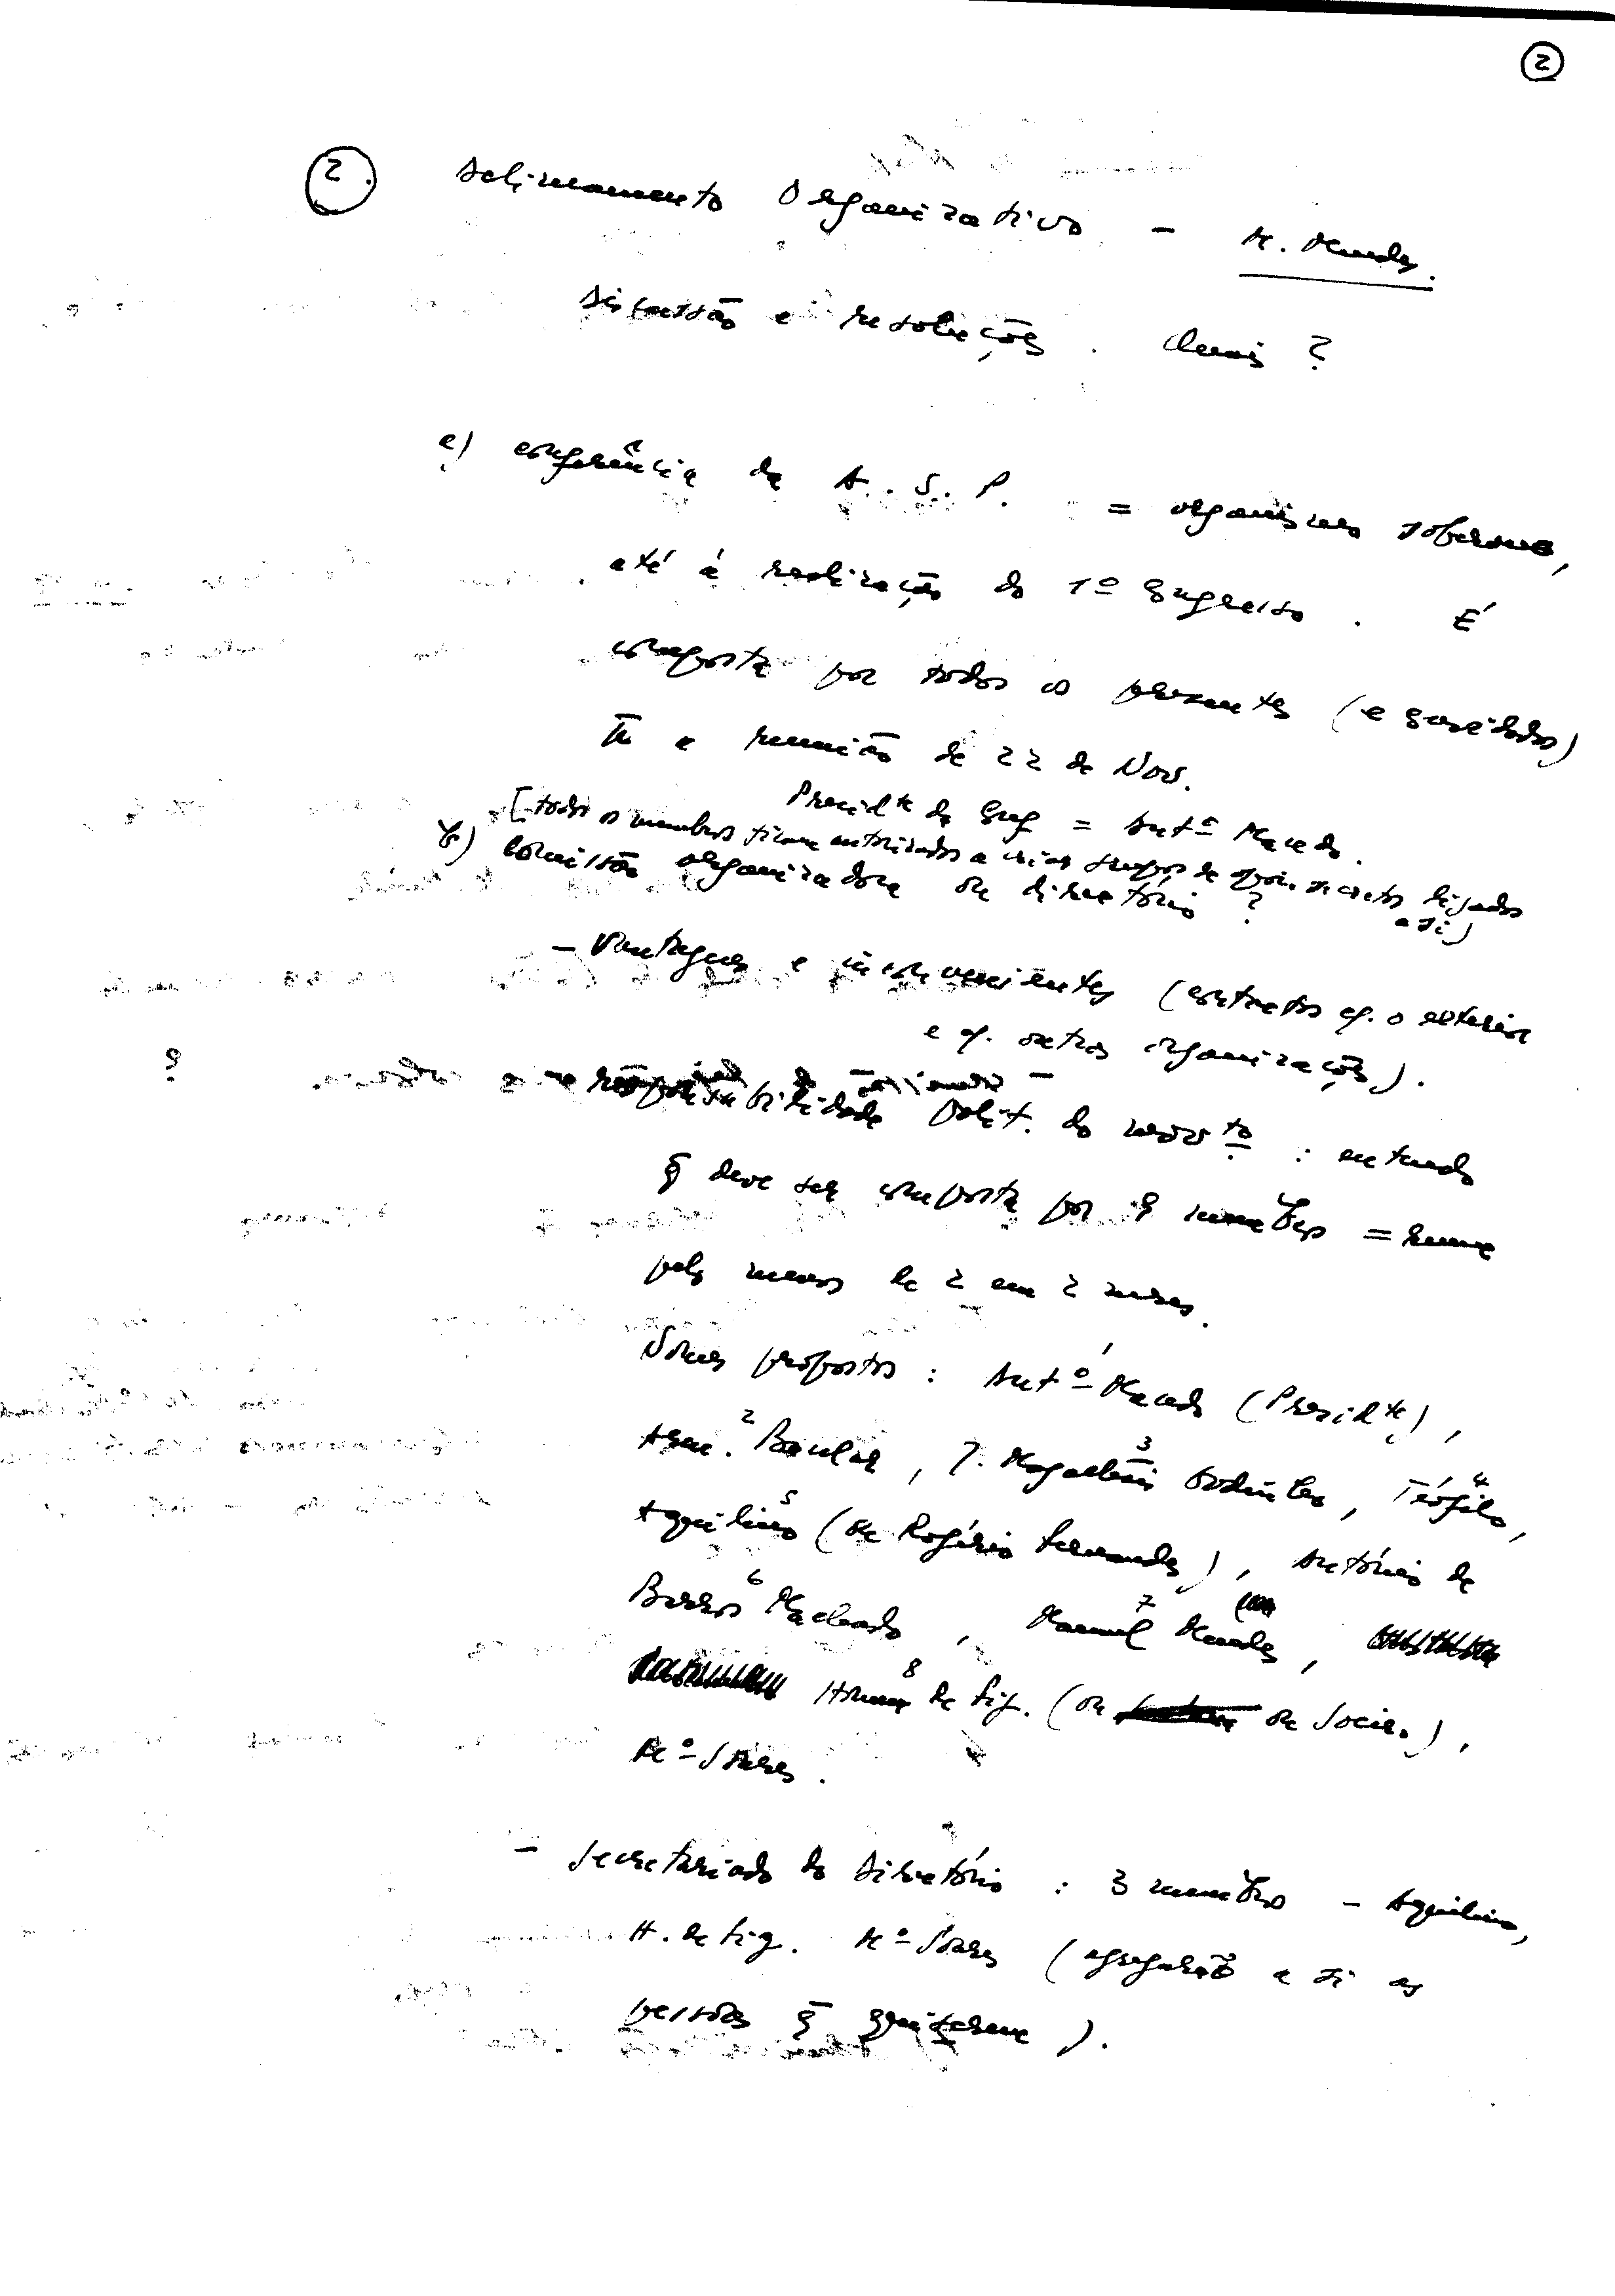 2
2. Delineamento Organizativo - M. Mendes.
Discussão e resoluções. Quais ?
a) conferência da A.S.P. = organismo soberano,
até à realização do 1º Congresso. É
composta por todos os presentes (e convidados)
a reunião de 22 de Nov.
Presidte da Conf = Antº Macedo.
[todos os membros ficam autorizados a criar grupos de apoio secretos ligados
a si]
b) Comissão organizadora ou directório ?
- Vantagens e inconvenientes (contactos c/. o exterior
e c/. outras organizações).
- responsabilidade polít. do movto : entendo
q̄ deve ser composta por membros = reune
pelo menos de 2 em 2 meses.
Nomes propostos : Antº 1 Macedo (Presidte),
Arm. 2 Bacelar, J. Magalhães 3 Godinho, Teófilo 4,
Aquilino 5 (ou Rogério Fernandes), António de
Barros 6 Machado, Manuel 7 Mendes,
Homem 8 de Fig. (ou ou Socio.),
Mº Soares.
- Secretariado do Directório : 3 membros - Aquilino,
H. de Fig. Mº Soares (agregarão a si as
pessoas q̄ quiserem).